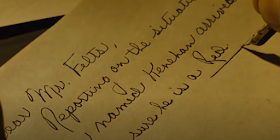 Dear Mr. Felts,
Reporting on the situation
named Kenehan arrived
sure he is a Red.